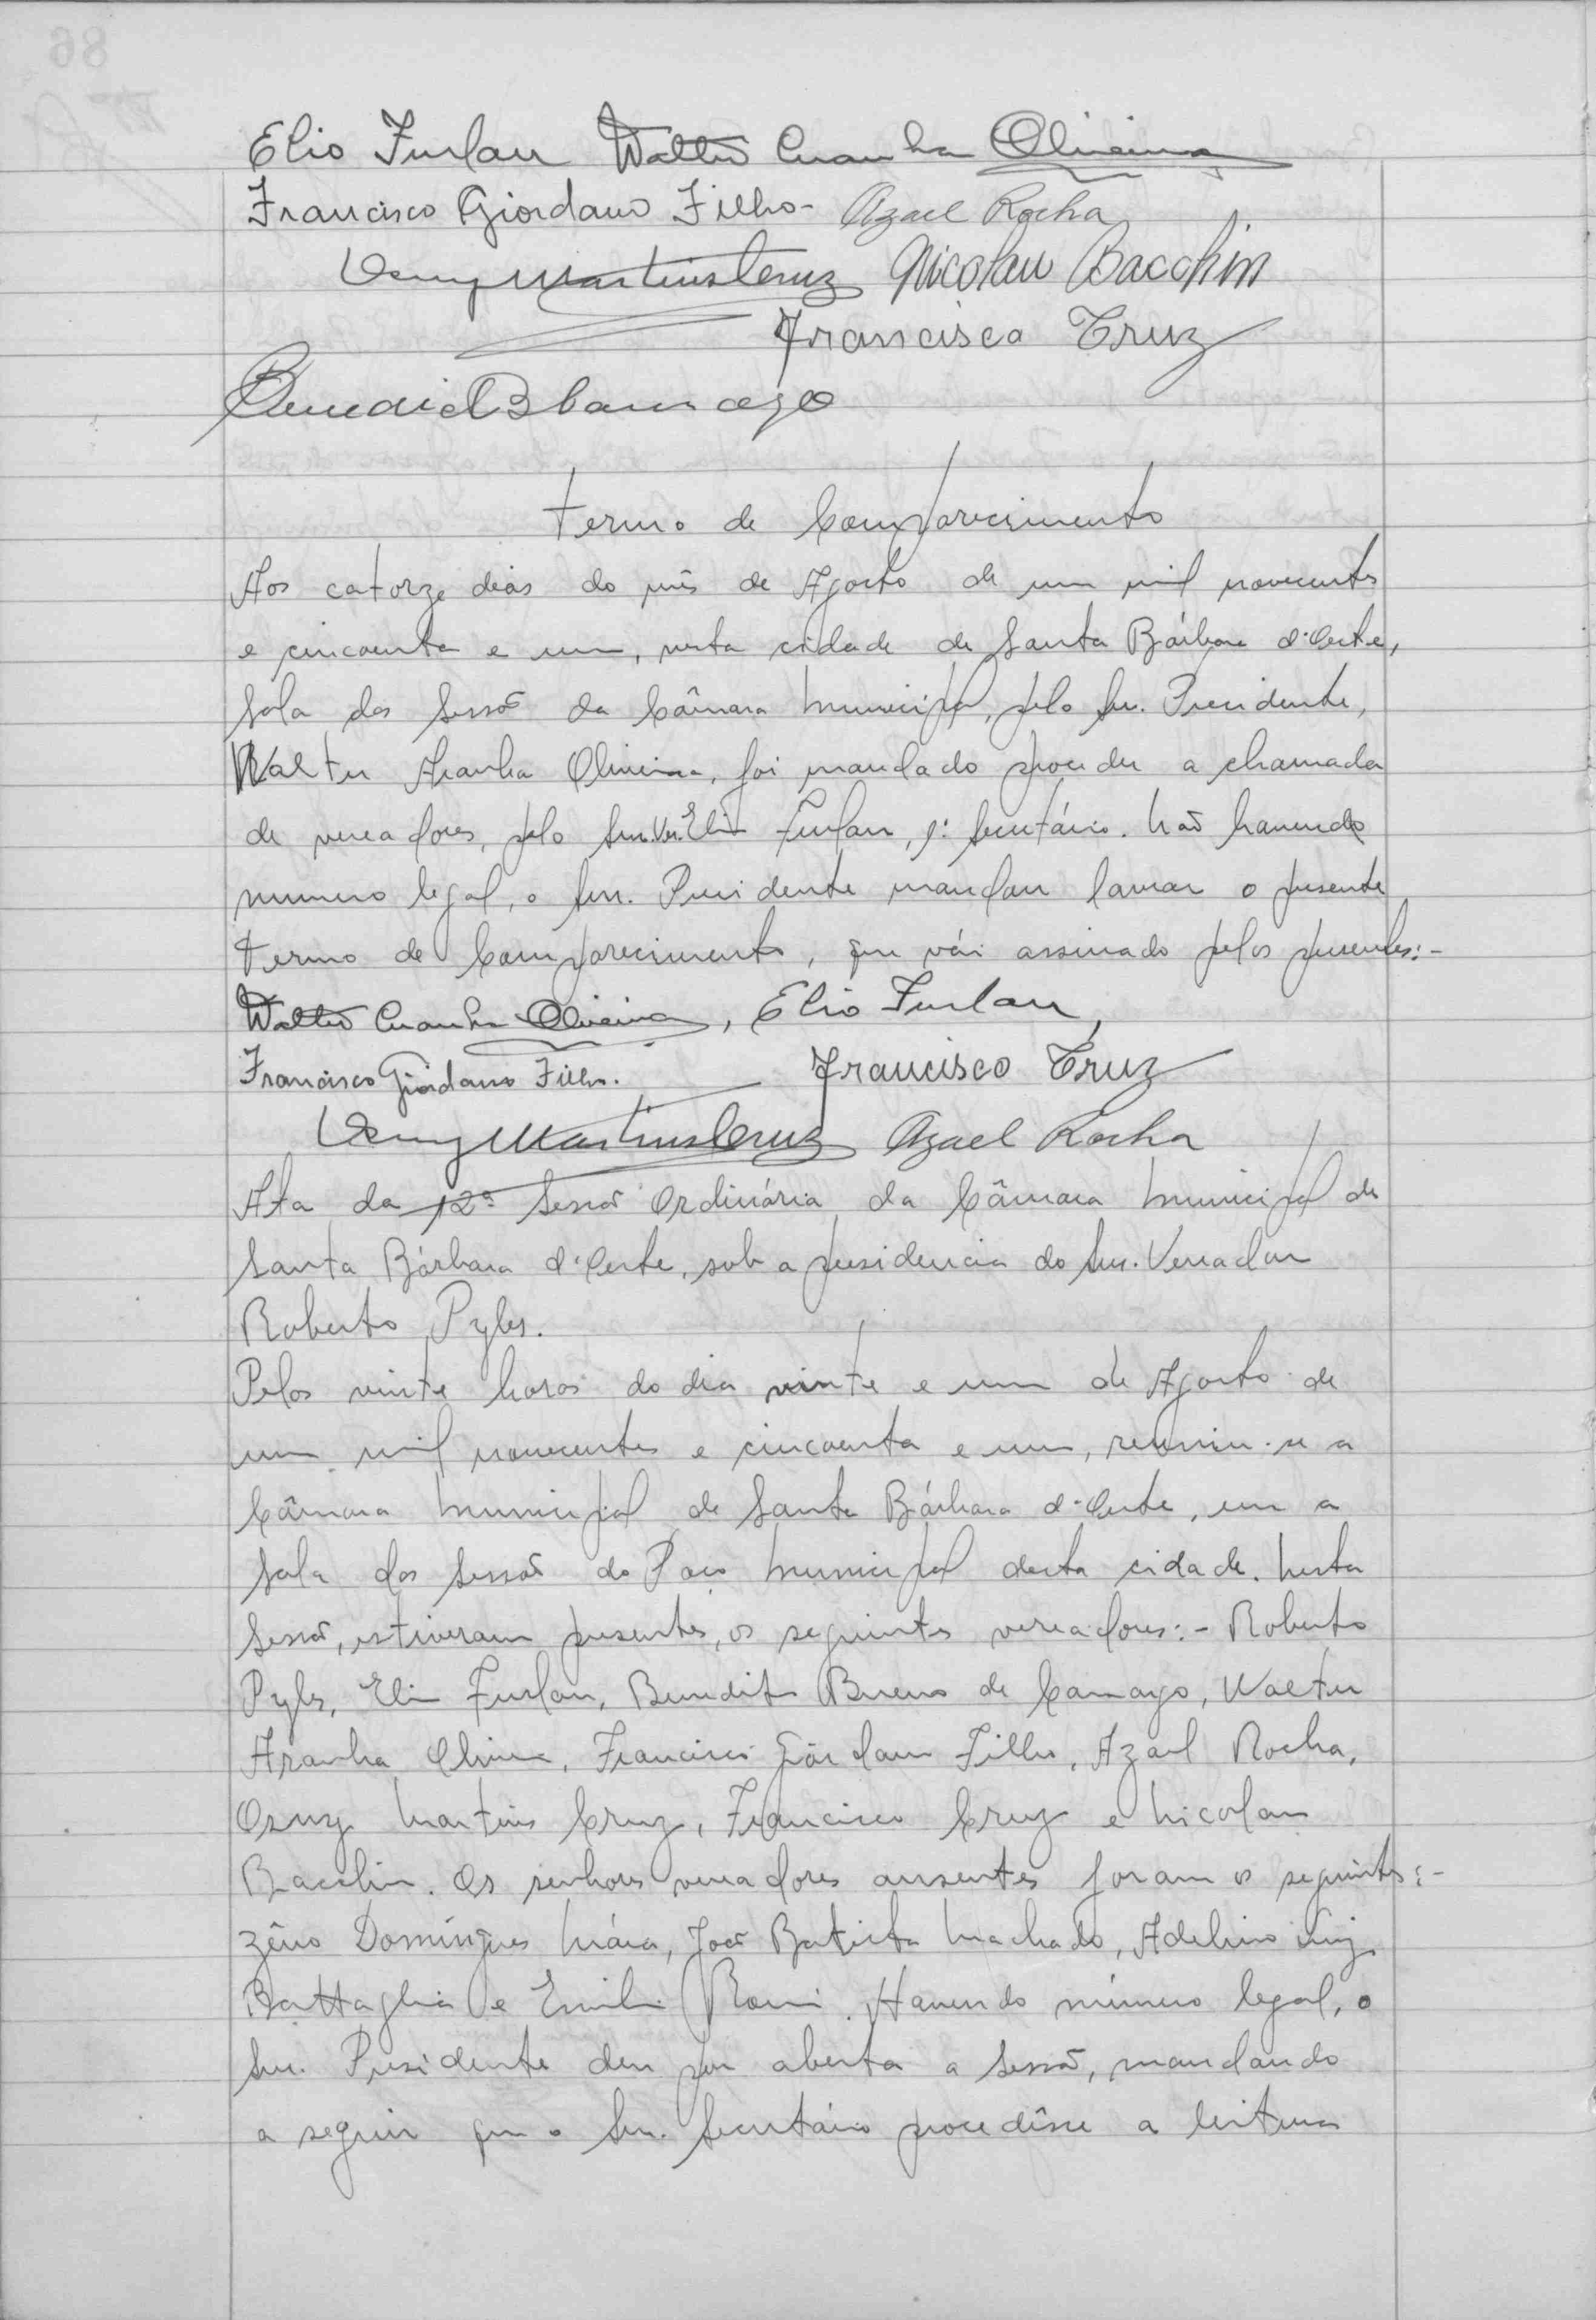 Elio Furlan Walter Aranha Oliveira
Francisco Giordano Filho - Azael Rocha
Osny Martins Cruz Nicolau Bacchin
Francisco Cruz
Benedicto B Camargo
Termo de Comparecimento
Aos catorze dias do mês de Agosto de um mil novecentos
e cincoenta e um, nesta cidade de Santa Bárbara d'Oeste,
Sala das Sessão da Câmara Municipal, pelo Snr. Presidente,
Walter Aranha Oliveira, foi mandado proceder a chamada
de vereadores, pelo Snr. Ver. Elio Furlan, 1º Secretário. Não havendo
numero legal, o Snr. Presidente mandou lavrar o presente
Termo de Comparecimento, que vái assinado pelos presentes:-
Walter Aranha Oliveira, Elio Furlan,
Francisco Giordano Filho. Francisco Cruz
Osny Martins Cruz Azael Rocha
Ata da 12ª Sessão Ordinária da Câmara Municipal de
Santa Bárbara d'Oeste, sob a presidencia do Snr. Vereador
Roberto Pyles.
Pelas vinte horas do dia vinte e um de Agosto de
um mil novecentos e cincoenta e um, reuniu-se a
Câmara Municipal de Santa Bárbara d'Oeste, em a
Sala das Sessões do Paço Municipal desta cidade. Nesta
Sessão, estiveram presentes, os seguintes vereadores:- Roberto
Pyles, Elio Furlan, Benedito Bueno de Camargo, Walter
Aranha Oliveira, Francisco Giordano Filho, Azael Rocha,
Osny Martins Cruz, Francisco Cruz e Nicolau
Bacchin. Os senhores vereadores ausentes foram os seguintes:-
Zêno Domingues Máia, João Batista Machado, Adelino
Battaglia e Emilio Romi. Havendo número legal, o
Snr. Presidente deu por aberta a sessão, mandando
a seguir que o Snr. Secretário procedêsse a leitura